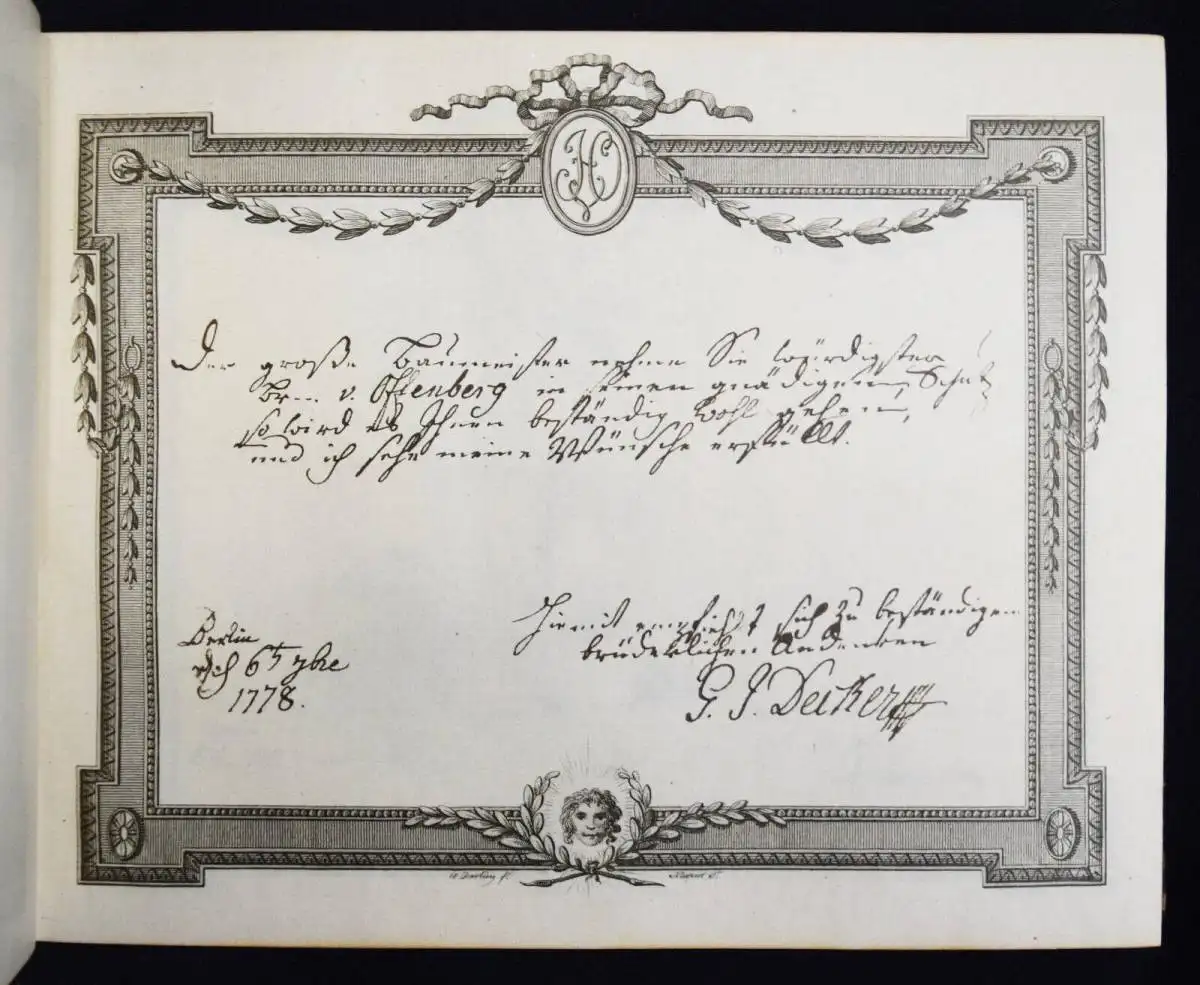 Der große Baumeister nehme Sie würdigster
Br... v. Offenberg in seinen gnädigen Schutz
so wird es Ihnen beständig wohl gehen,
und ich sehe meine Wünsche erfüllt.
Berlin
6ten 7bre
1778.
Hiermit empfiehlt sich zu beständigem
brüderlichen Andenken
G. J. Decker